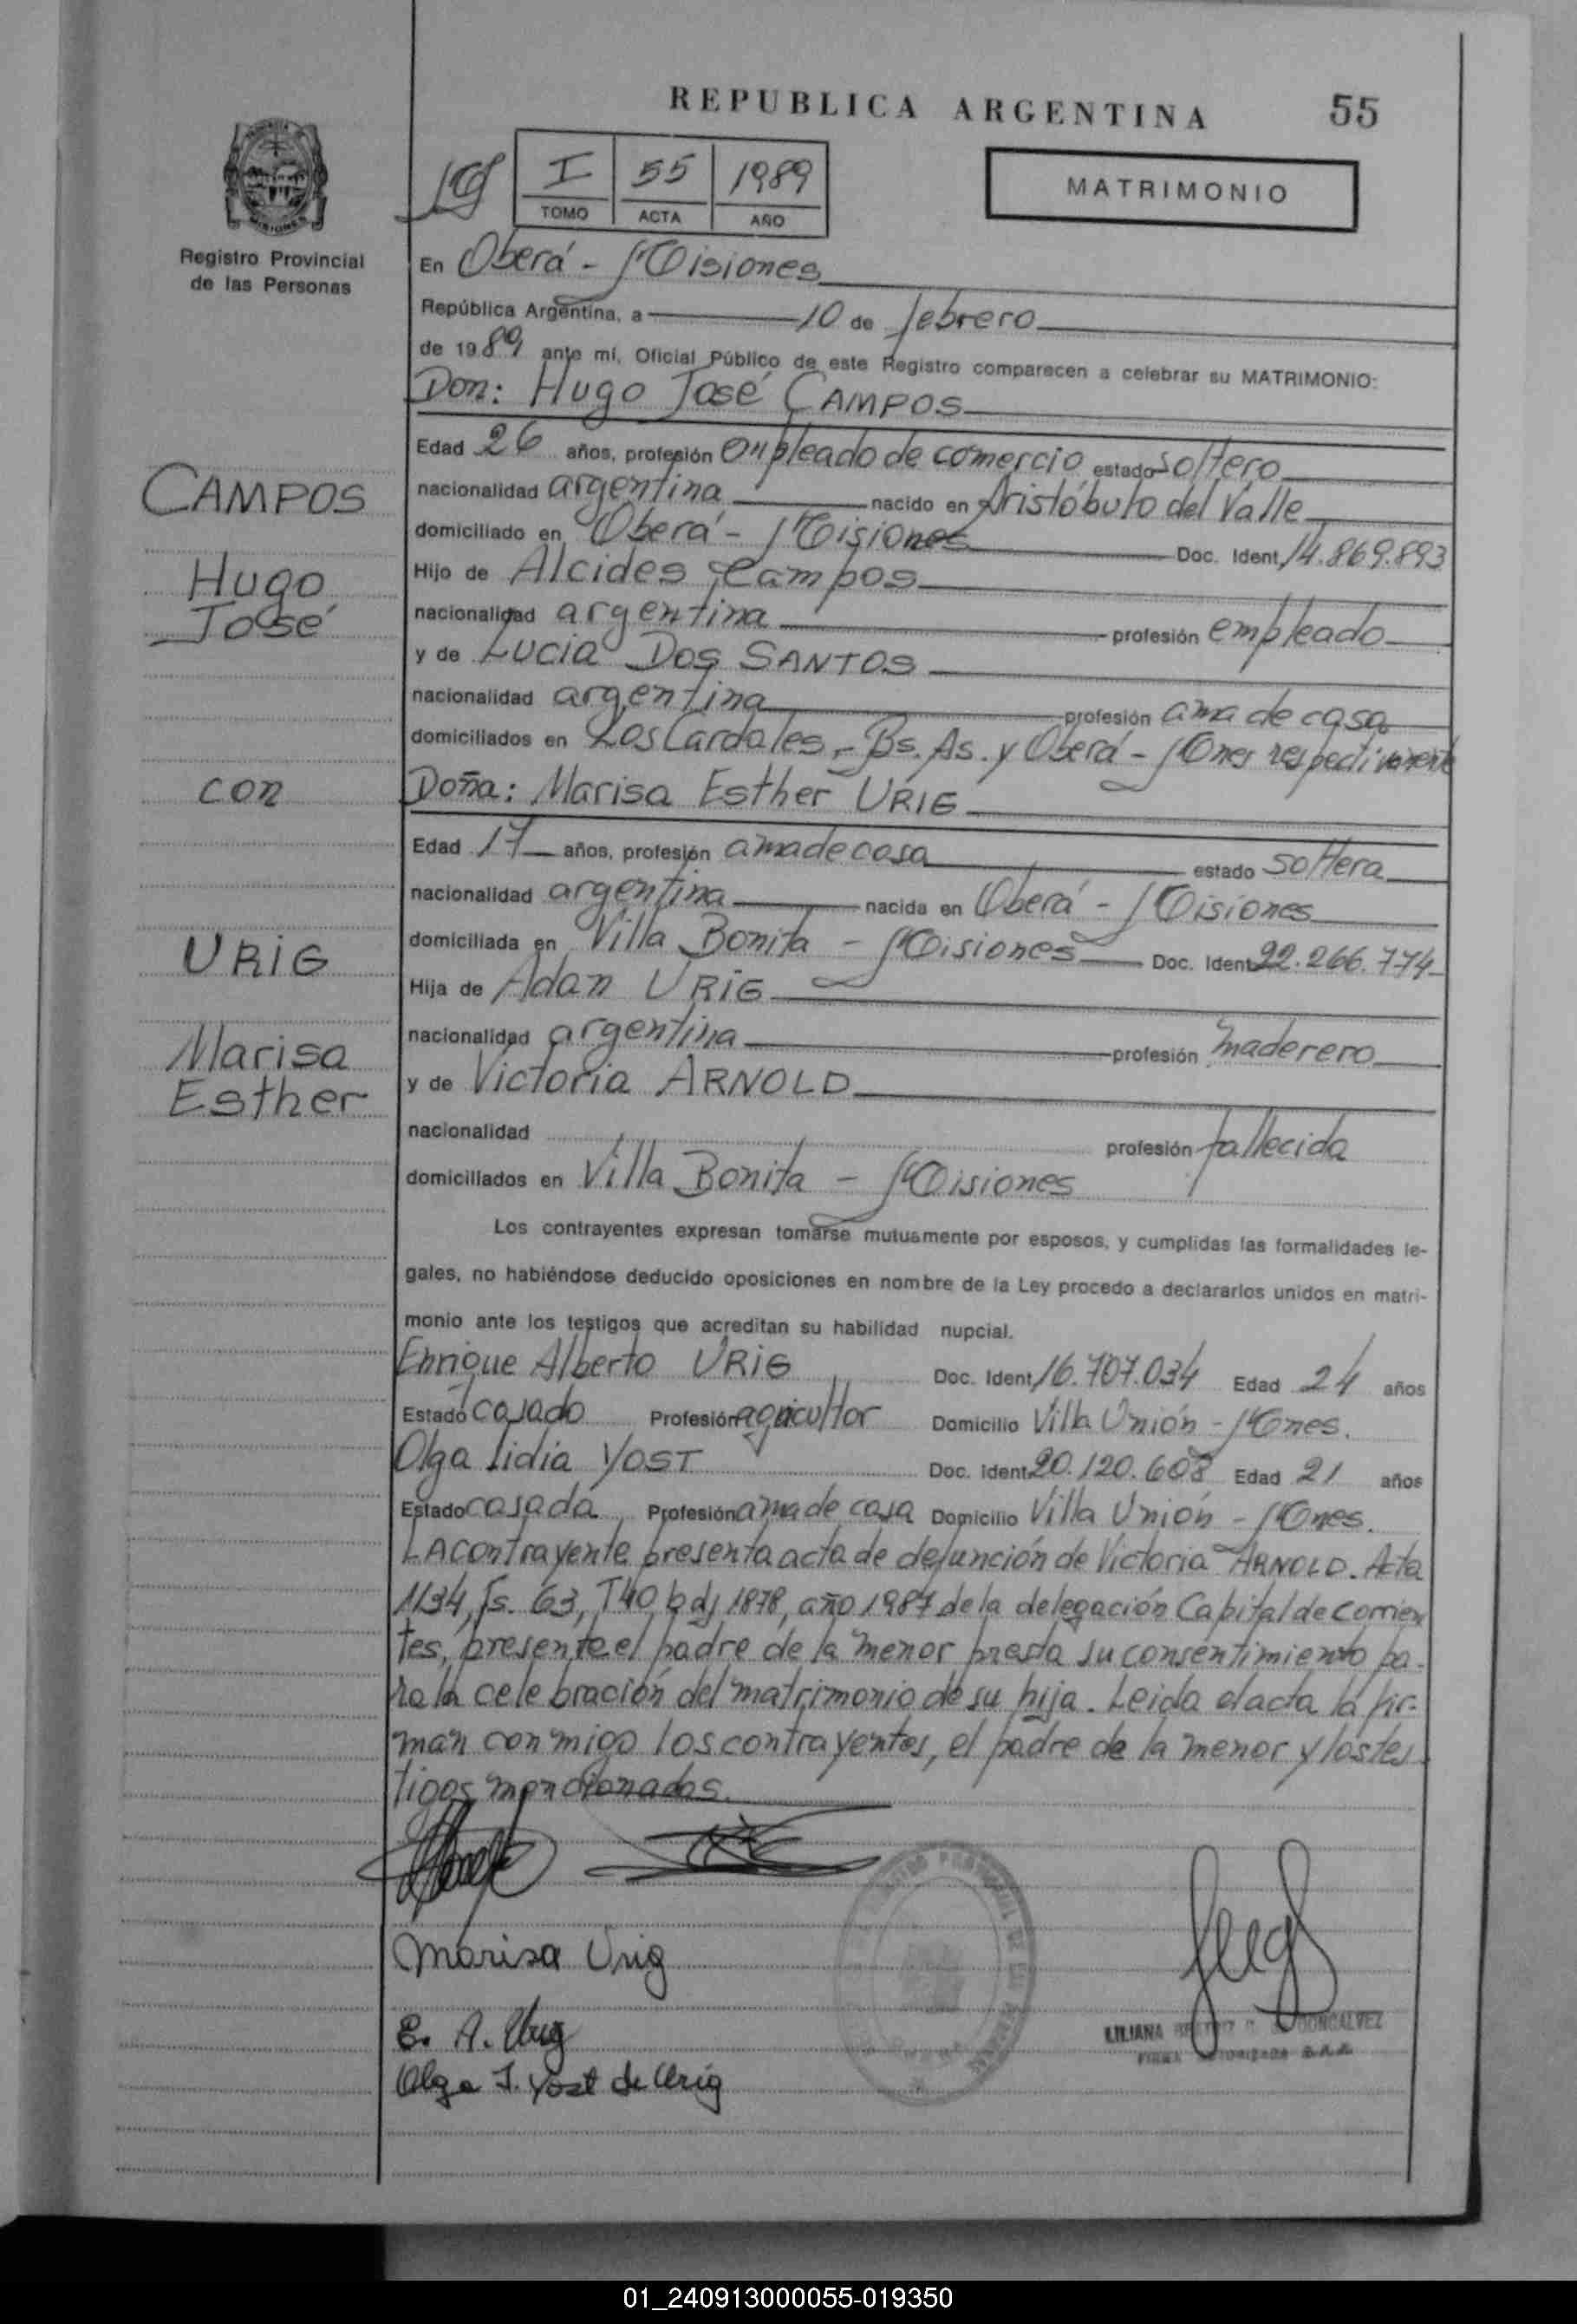 REPUBLICA ARGENTINA 55
I 55 1989
TOMO ACTA AÑO
MATRIMONIO
MISIONES
Registro Provincial
de las Personas
En Oberá - Misiones
República Argentina, a 10 de febrero
de 1989 ante mí, Oficial Público de este Registro comparecen a celebrar su MATRIMONIO:
Don: Hugo José CAMPOS
Edad 26 años, profesión empleado de comercio estado soltero
nacionalidad argentina nacido en Aristóbulo del Valle
domiciliado en Oberá - Misiones Doc. Ident. 14.869.893
Hijo de Alcides Campos
nacionalidad argentina profesión empleado
y de Lucia DOS SANTOS
nacionalidad argentina profesión ama de casa
domiciliados en Los Cardales - Bs. As. y Oberá - Mnes respectivamente
Doña: Marisa Esther URIG
Edad 17 años, profesión ama de casa estado soltera
nacionalidad argentina nacida en Oberá - Misiones
domiciliada en Villa Bonita - Misiones Doc. Ident. 22.266.774
Hija de Adan URIG
nacionalidad argentina profesión maderero
y de Victoria ARNOLD
nacionalidad profesión fallecida
domiciliados en Villa Bonita - Misiones
CAMPOS
Hugo
José
con
URIG
Marisa
Esther
Los contrayentes expresan tomarse mutuamente por esposos, y cumplidas las formalidades le-
gales, no habiéndose deducido oposiciones en nombre de la Ley procedo a declararlos unidos en matri-
monio ante los testigos que acreditan su habilidad nupcial.
Enrique Alberto URIG Doc. Ident. 16.707.034 Edad 24 años
Estado casado Profesión agricultor Domicilio Villa Unión - Mnes.
Olga Lidia YOST Doc. Ident. 20.120.608 Edad 21 años
Estado casada Profesión ama de casa Domicilio Villa Unión - Mnes.
LA contrayente presenta acta de defunción de Victoria ARNOLD. Acta
1134, Fs. 63, T40, bdj 1878, año 1987 de la delegación Capital de Corrien
tes, presente el padre de la menor presta su consentimiento pa-
ra la celebración del matrimonio de su hija. Leida el acta la fir-
man conmigo los contrayentes, el padre de la menor y los tes
tigos mencionados.
Marisa Urig
E. A. Urig
Olga L. Yost de Urig
LILIANA GONCALVEZ
FIRMA AUTORIZADA
01_240913000055-019350